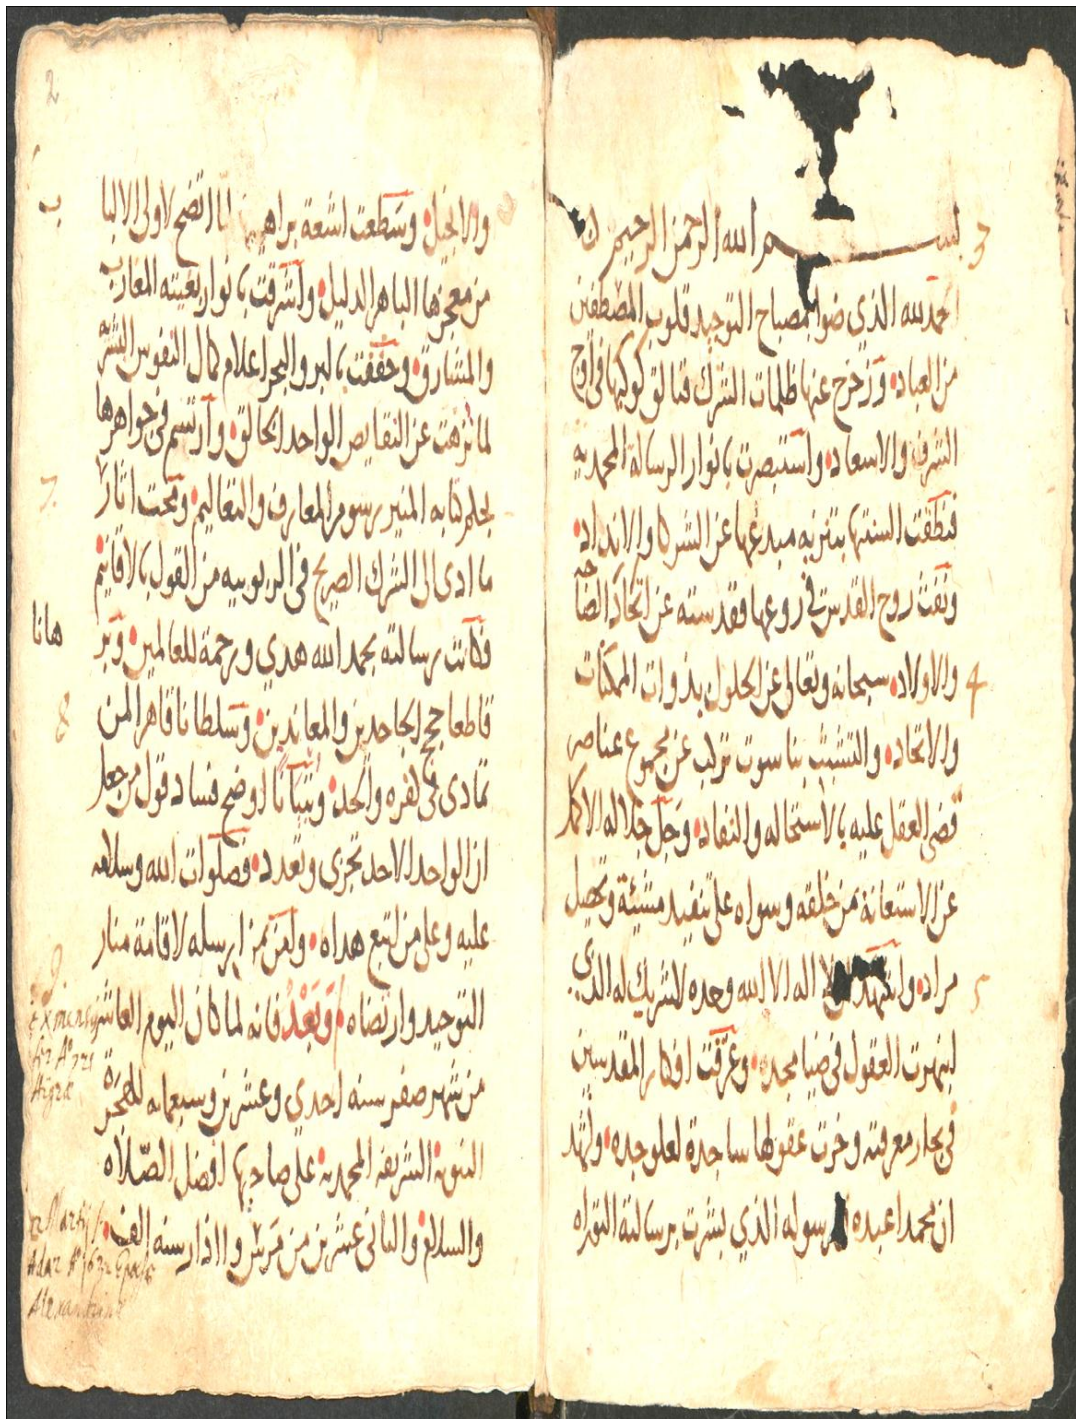 بسم الله الرحمن الرحيم
الحمد لله الذي ضوا بمصباح التوحيد قلوب المصطفين
من العباد وزحزح عنها ظلمات الشرك فتالق كوكبها في اوج
الشرف والاسعاد واستبصرت بانوار الرسالة المحمدية
فنطقت السنتها بتنزيه مبدعها عن الشركا والانداد
ونفث روح القدس في روعها فقدسته عن اتخاذ الصاحبة
والاولاد سبحانه وتعالى عن الحلول بذوات الممكنات
والاتحاد والتشبث بناسوت تركب عن مجموع عناصر
قضى العقل عليه بالاستحاله والنفاد وجل جلاله الاكبر
عن الاستعانة بمن خلقه وسواه على تنفيد مشيئة وتحصيل
مراد واشهد الا اله الا الله وحده لا شريك له الذي
انبهرت العقول في ضيا مجده وغرقت افكار المقدسين
في بحار معرفته وخرت عقولها ساجدة لعلو جده واشهد
ان محمدا عبده ورسوله الذي بشرت برسالته التوراه
2
والانجيل وسطعت اشعة براهينه لما اتضح لاولى الالباب
من معجزها الباهر الدليل واشرقت بانوار بغيته المغارب
والمشارق وخفقت بالبر والبحر اعلام كمال النفوس البشريه
لما نزهت عن النقايص الواحد الخالق وارتسم في جواهرها
بحلم كتابه المنير رسوم المعارف والتعاليم ومحت اثار
ما ادى الى الشرك الصريح في الربوبيه من القول بالاقانيم
فكانت رسالته بحمد الله هدي ورحمة للعالمين وبرهانا
قاطعا حجج الجاحدين والمعاندين وسلطانا قاهرا لمن
تمادى في كفره والحد وتبيانا اوضح فساد قول من جعل
ان الواحد الاحد تجزى وتعدد فصلوات الله وسلامه
عليه وعلى من اتبع هداه ولمن ارسله لاقامة منار
التوحيد وارتضاه وبعد فانه لما كان اليوم العاشر
من شهر صفر سنه احدي وعشرين وسبعمايه للهجرة
النبوية الشريفه المحمدية على صاحبها افضل الصلاه
والسلام والثاني عشر من مرش واذار سنه الف
3
4
5
7.
8
9.
Ex mensis
A° 721
Higræ
Martij
Adar A° Epochæ
Alexandrinæ